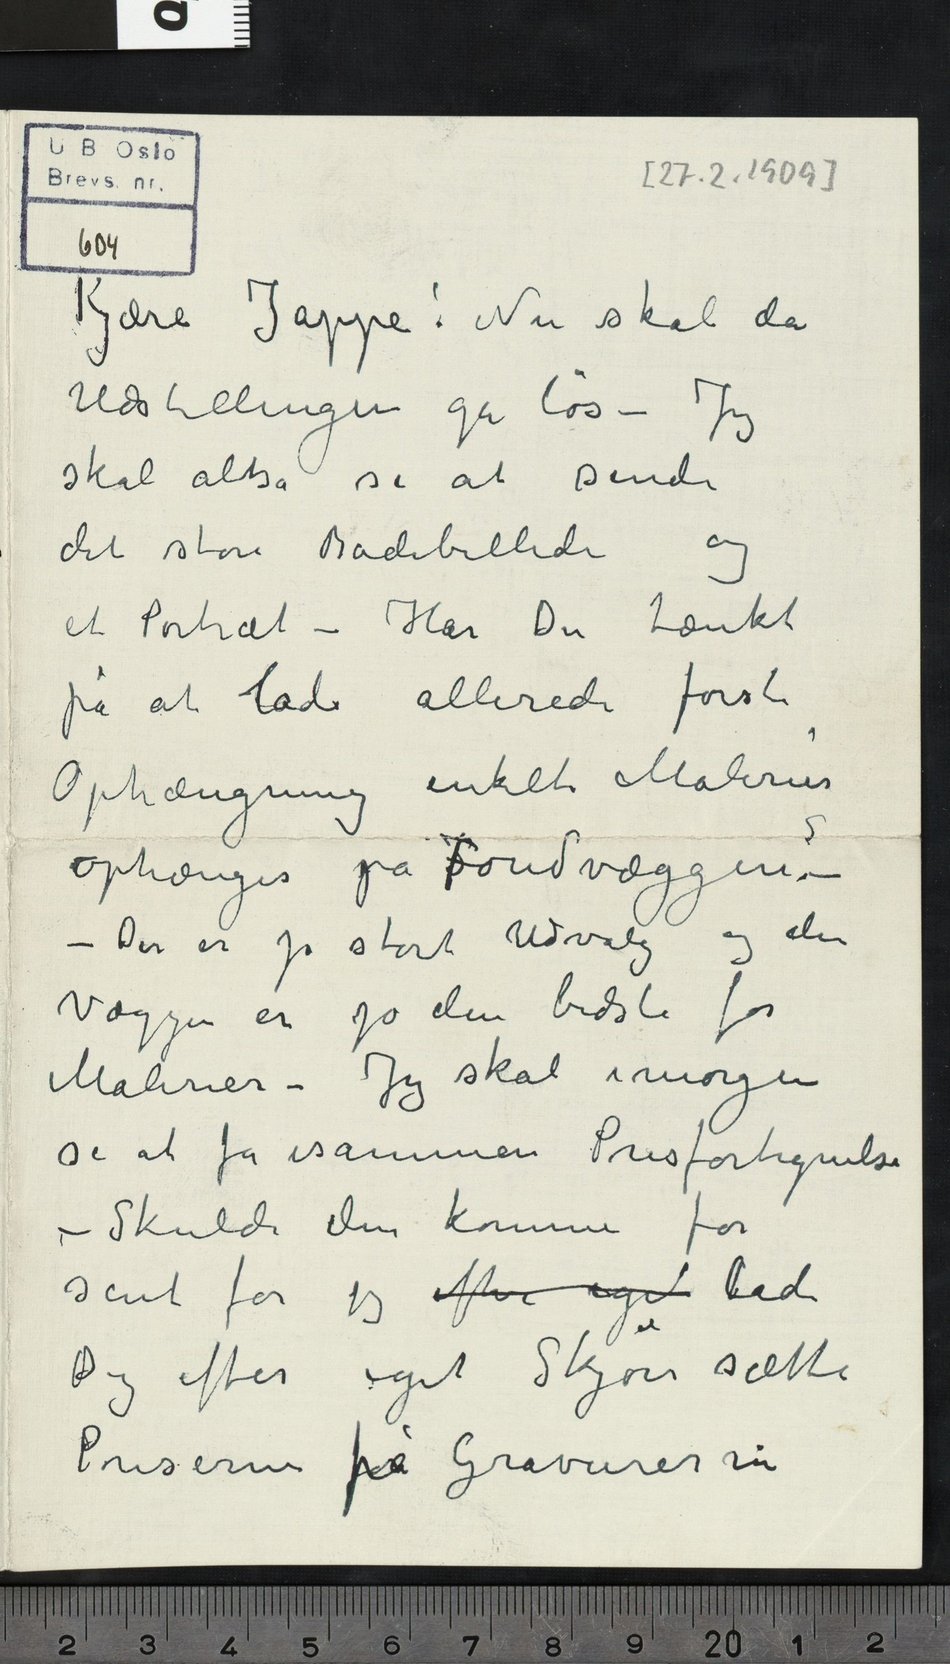 U B Oslo
Brevs. nr.
604
[27.2.1909]
Kjære Jappe! Nu skal da
Udstillingen ga lös – Jeg
skal altsa se at sende
det store Badebillede og
et Portræt – Har Du tænkt
på at lade allerede første
Ophængning enkelte Malerier
ophænges pa Fondvæggen. –
– Der er jo stort Udvalg og den
Væggen er jo den bedste for
Malerier – Jeg skal imorgen
se at fa isammen Prisfortegnelse
– Skulde den komme for
sent får jeg efter eget lade
Dig efter eget Skjön sætte
Priserne på Gravurerne
2 3 4 5 6 7 8 9 20 1 2